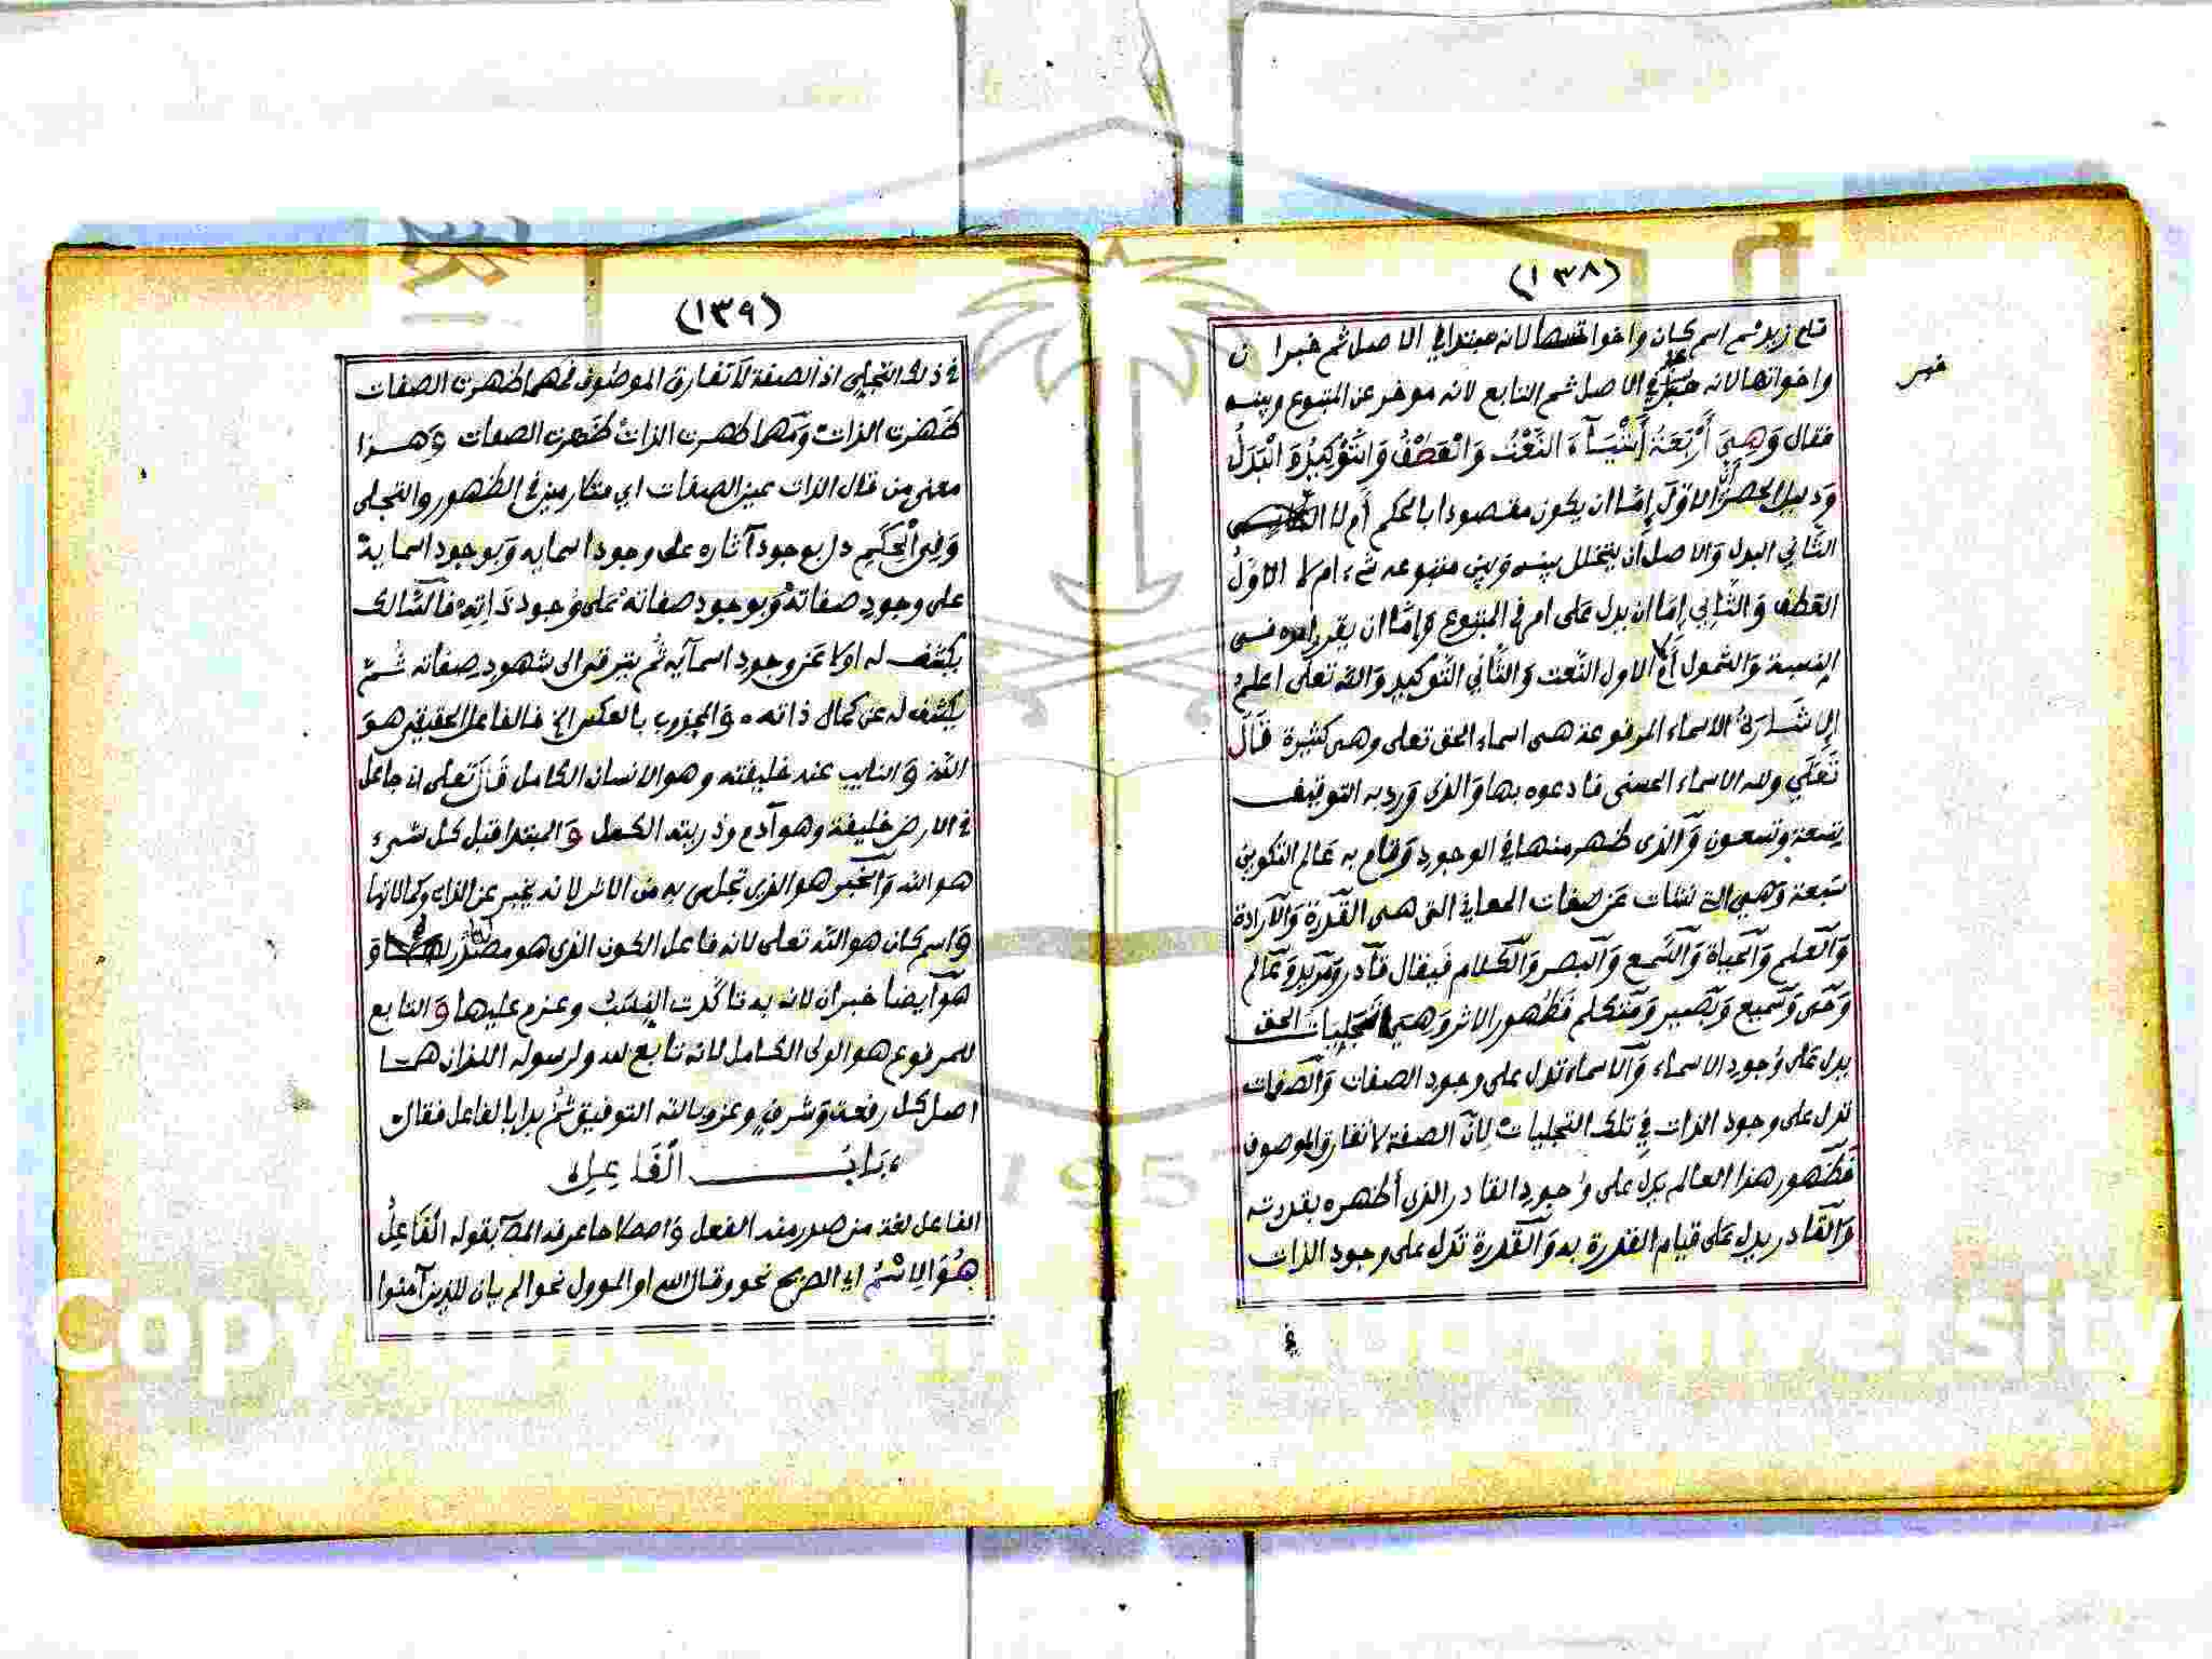 (١٣٨)
قام زيد ثم اسم كان واخواتها لانه مبتدا في الاصل ثم خبر ان
خبر
واخواتها لانه خبر في الاصل ثم التابع لانه موخر عن المتبوع وبينه
فقال وَهِيَ أَرْبَعَةُ أَشْيَآءَ النَّعْتُ وَالْعَطْفُ وَالتَّوْكِيدُ وَالْبَدَلُ
وَدليل الحصر ان الاوّل اِمّا ان يكون مقصودا بالحكم أم لا
الثَّاني البدل وَالاصل ان يتخلل بينه وَبين متبوعه شيء ام لا الاوّلُ
العَطف وَالثَّاني إمَّا ان يدل عَلى امر في المتبوع وَاِمَّا ان يقرر امره فى
النسبة وَالشمول الاول النَّعت وَالثَّاني التَّوكيد وَالله تعلى اعلم
اِلاشَارَةُ الاسماء المرفوعة هى اسماء الحق تعلى وهى كثيرة قَالَ
تَعَلَي ولله الاسماء الحسنى فادعوه بها وَالذى وَرد به التوقيف
تِسعة وتسعون وَالذى ظهر منها في الوجود وَقام به عَالم التكوين
سَبعة وَهي التى نشات عَن صفات المعاني التى هى القدرة وَالارادة
وَالعلم وَالحياة وَالسَّمع وَالبصر وَالكلام فيقال قادر وَمريد وَعالم
وَحى وَسَميع وَبَصير وَمتكلم فَظُهور الاثر وَهي تَجلِيات الحق
يدل عَلى وُجود الاسماء وَالاسماء تدل على وجود الصفات وَالصفات
تدل على وجود الذات فِي تلك التجليات لِانّ الصفة لا تفارق الموصوف
فَظهور هذا العالم يَدل على وُجود القادر الذى أظهره بقدرته
وَالقادر يدل عَلى قيام القدرة به وَالقدرة تدل على وجود الذات
في
(١٣٩)
في ذلك التجلى اذ الصفة لا تفارق الموصوف فمهما ظهرت الصفات
ظَهرت الذات وَمهما ظهرت الذاتُ ظَهرت الصفات وَهذا
معنى من قال الذات عين الصفات اي متلازمين في الظهور والتجلى
وَفِي الْحِكَمِ دل بوجود آثاره على وجود اسمايه وَبوجود اسمايه
على وجود صفاته وَبوجود صفاته عَلى وُجود ذَاتِهِ فالسَّالك
يكشف له اولا عَن وجود اسمآيه ثم يترقى الى شهود صِفاته ثمّ
يكشف له عن كمال ذاته وَالمجذوب بالعكس الخ فالفاعل الحقيقى هوَ
اللهُ وَالنايب عنه خليفته وهو الانسان الكامل قَالَ تعلى انى جاعل
في الارض خليفة وهو آدم وذريته الكمل وَالمبتدا قبل كل شىء
هو الله وَالخبر هو الذى تجلى به من الاثر لانه يخبر عن الذات وكمالاتها
وَاسم كان هو الله تعلى لانه فاعل الكون الذى هو مصدر وَ
هو ايضا خبر ان لانه به تاكدت النِسَبُ وعزم عليها وَالتابع
للمرفوع هو الولى الكامل لانه تابع لله ولرسوله اللذان هما
اصل كل رفعة وَشرفٍ وعز وبالله التوفيق ثم بدا بالفاعل فقال
بَابُ الْفَاعِلِ
الفاعل لغة من صدر منه الفعل وَاصطلاحا عرفه المص بقوله الْفَاعِلُ
هُوَ الِاسْمُ اى الصريح نحو وقال الله او الموول نحو الم يان للذين آمنوا